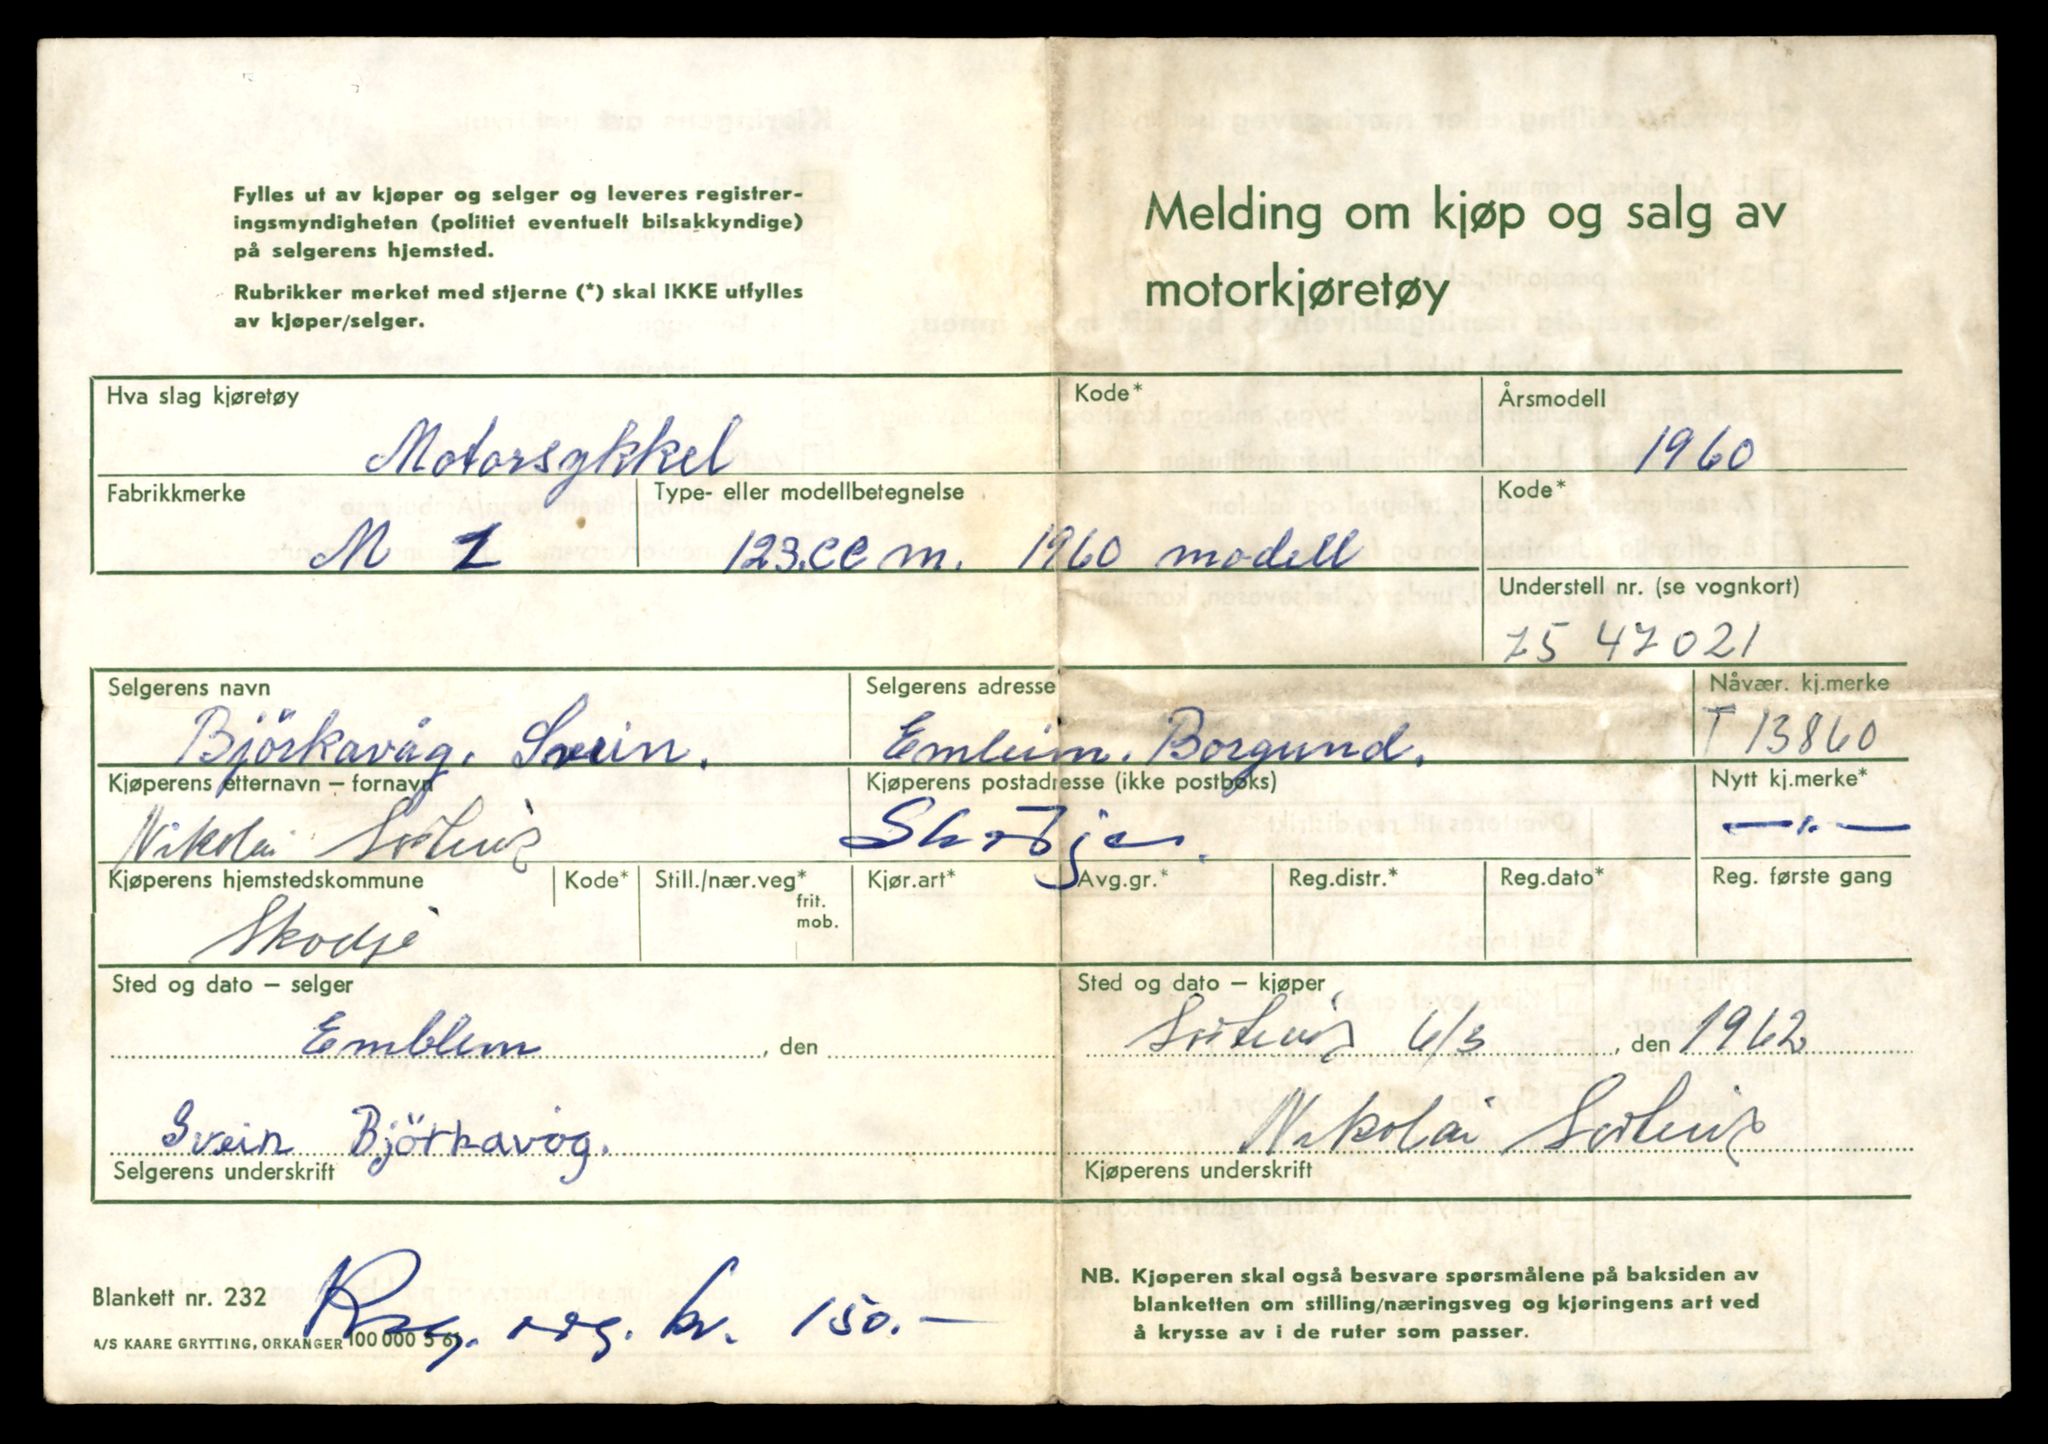 Fylles ut av kjøper og selger og leveres registrer-
ingsmyndigheten (politiet eventuelt bilsakkyndige)
på selgerens hjemsted.
Rubrikker merket med stjerne (*) skal IKKE utfylles
av kjøper/selger.
Melding om kjøp og salg av
motorkjøretøy
Hva slag kjøretøy
Kode*
Årsmodell
Motorsykkel
1960
Fabrikkmerke
Type- eller modellbetegnelse
Kode*
M Z
123.CC m. 1960 modell
Understell nr. (se vognkort)
7547021
Selgerens navn
Selgerens adresse
Nåvær. kj.merke
Björkavåg. Svein.
Emleim. Borgund.
T 13860
Kjøperens etternavn – fornavn
Kjøperens postadresse (ikke postboks)
Nytt kj.merke*
Nikolai
Skodje.
Kjøperens hjemstedskommune
Kode*
Still./nær.veg*
frit.
mob.
Kjør.art*
Avg.gr.*
Reg.distr.*
Reg.dato*
Reg. første gang
Skodje
Sted og dato – selger
Sted og dato – kjøper
Emblem , den
6/3 , den 1962
Svein Björkavåg.
Nikolai
Selgerens underskrift
Kjøperens underskrift
Blankett nr. 232
A/S KAARE GRYTTING, ORKANGER 100 000 5 61
Reg. avg. kr. 150.–
NB. Kjøperen skal også besvare spørsmålene på baksiden av
blanketten om stilling/næringsveg og kjøringens art ved
å krysse av i de ruter som passer.